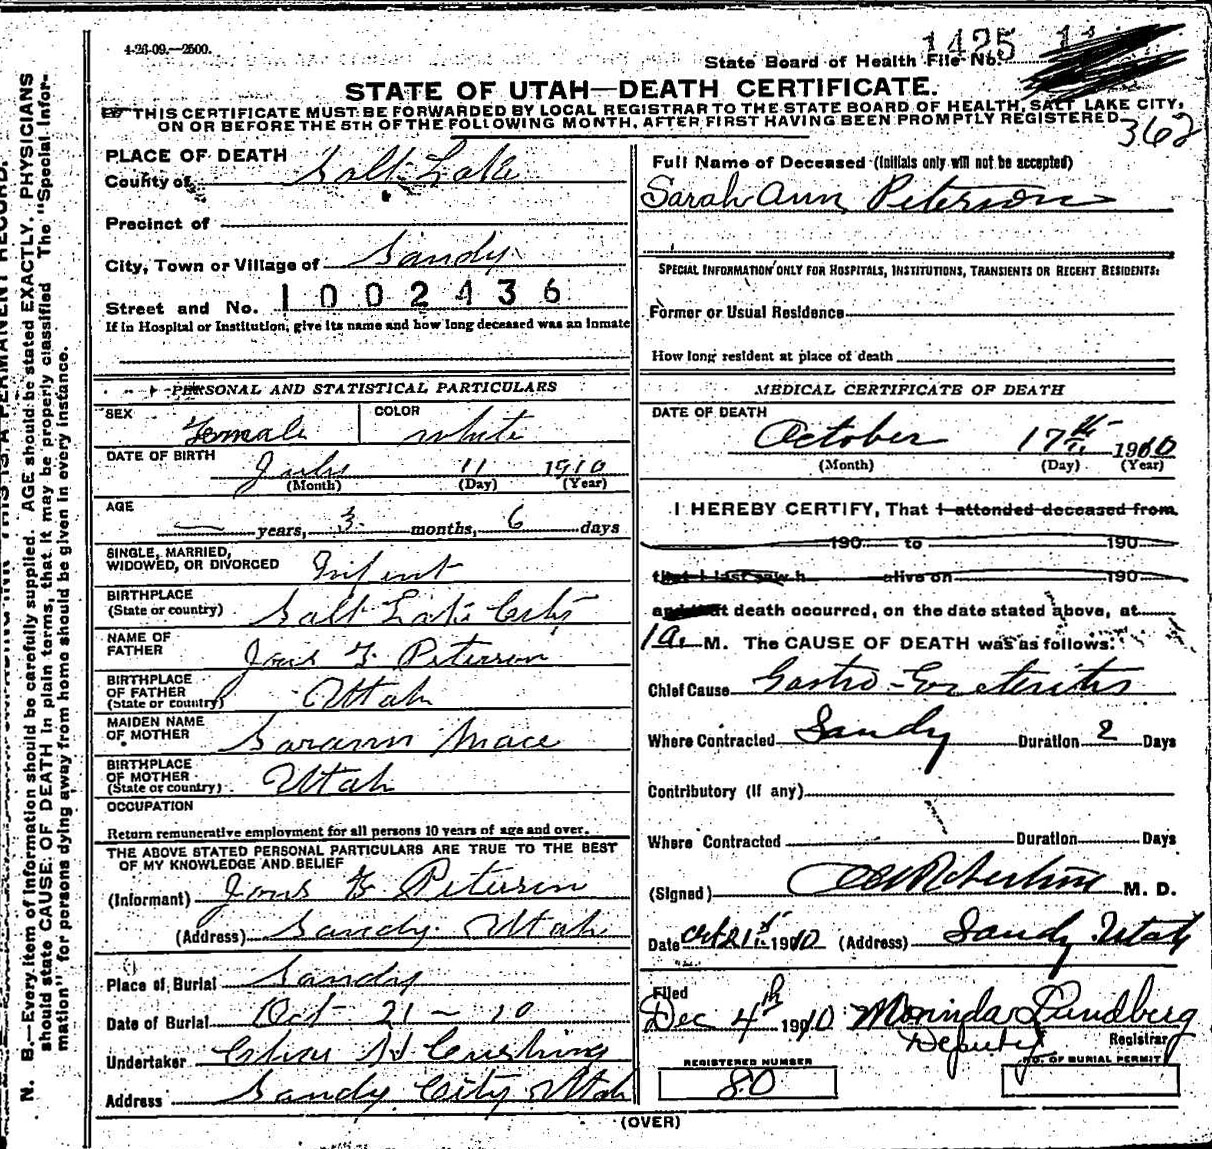 4-26-09.—2500.
1425
State Board of Health File No.
STATE OF UTAH—DEATH CERTIFICATE.
THIS CERTIFICATE MUST BE FORWARDED BY LOCAL REGISTRAR TO THE STATE BOARD OF HEALTH, SALT LAKE CITY,
ON OR BEFORE THE 5TH OF THE FOLLOWING MONTH, AFTER FIRST HAVING BEEN PROMPTLY REGISTERED.
362
PLACE OF DEATH
County of Salt Lake
Precinct of
City, Town or Village of Sandy
Street and No. 1002436
If in Hospital or Institution, give its name and how long deceased was an inmate
PERSONAL AND STATISTICAL PARTICULARS
SEX Female COLOR white
DATE OF BIRTH July 11 1910
(Month) (Day) (Year)
AGE
— years, 3 months, 6 days
SINGLE, MARRIED,
WIDOWED, OR DIVORCED Infent
BIRTHPLACE
(State or country) Salt Lake City
NAME OF
FATHER Jons F. Peterson
BIRTHPLACE
OF FATHER
(State or country) Utah
MAIDEN NAME
OF MOTHER Sarann Mace
BIRTHPLACE
OF MOTHER
(State or country) Utah
OCCUPATION
Return remunerative employment for all persons 10 years of age and over.
THE ABOVE STATED PERSONAL PARTICULARS ARE TRUE TO THE BEST
OF MY KNOWLEDGE AND BELIEF
(Informant) Jons F. Peterson
(Address) Sandy Utah
Place of Burial Sandy
Date of Burial Oct 21 – 10
Undertaker Cushing
Address Sandy City Utah
Full Name of Deceased (Initials only will not be accepted)
Sarah Ann Peterson
SPECIAL INFORMATION ONLY FOR HOSPITALS, INSTITUTIONS, TRANSIENTS OR RECENT RESIDENTS:
Former or Usual Residence
How long resident at place of death
MEDICAL CERTIFICATE OF DEATH
DATE OF DEATH
October 17th 1910
(Month) (Day) (Year)
I HEREBY CERTIFY, That I attended deceased from
190 to 190
that I last saw h alive on 190
and that death occurred, on the date stated above, at
1 a. M. The CAUSE OF DEATH was as follows:
Chief Cause Gastro-Enteritis
Where Contracted Sandy Duration 2 Days
Contributory (If any)
Where Contracted Duration Days
(Signed) Robertson M. D.
Date Oct 21st 1910 (Address) Sandy Utah
Filed
Dec 4th 1910 Morinda Lundberg
Deputy Registrar
REGISTERED NUMBER
80
NO. OF BURIAL PERMIT
(OVER)
N. B.—Every item of information should be carefully supplied. AGE should be stated EXACTLY. PHYSICIANS
should state CAUSE OF DEATH in plain terms, that it may be properly classified. The "Special Infor-
mation" for persons dying away from home should be given in every instance.